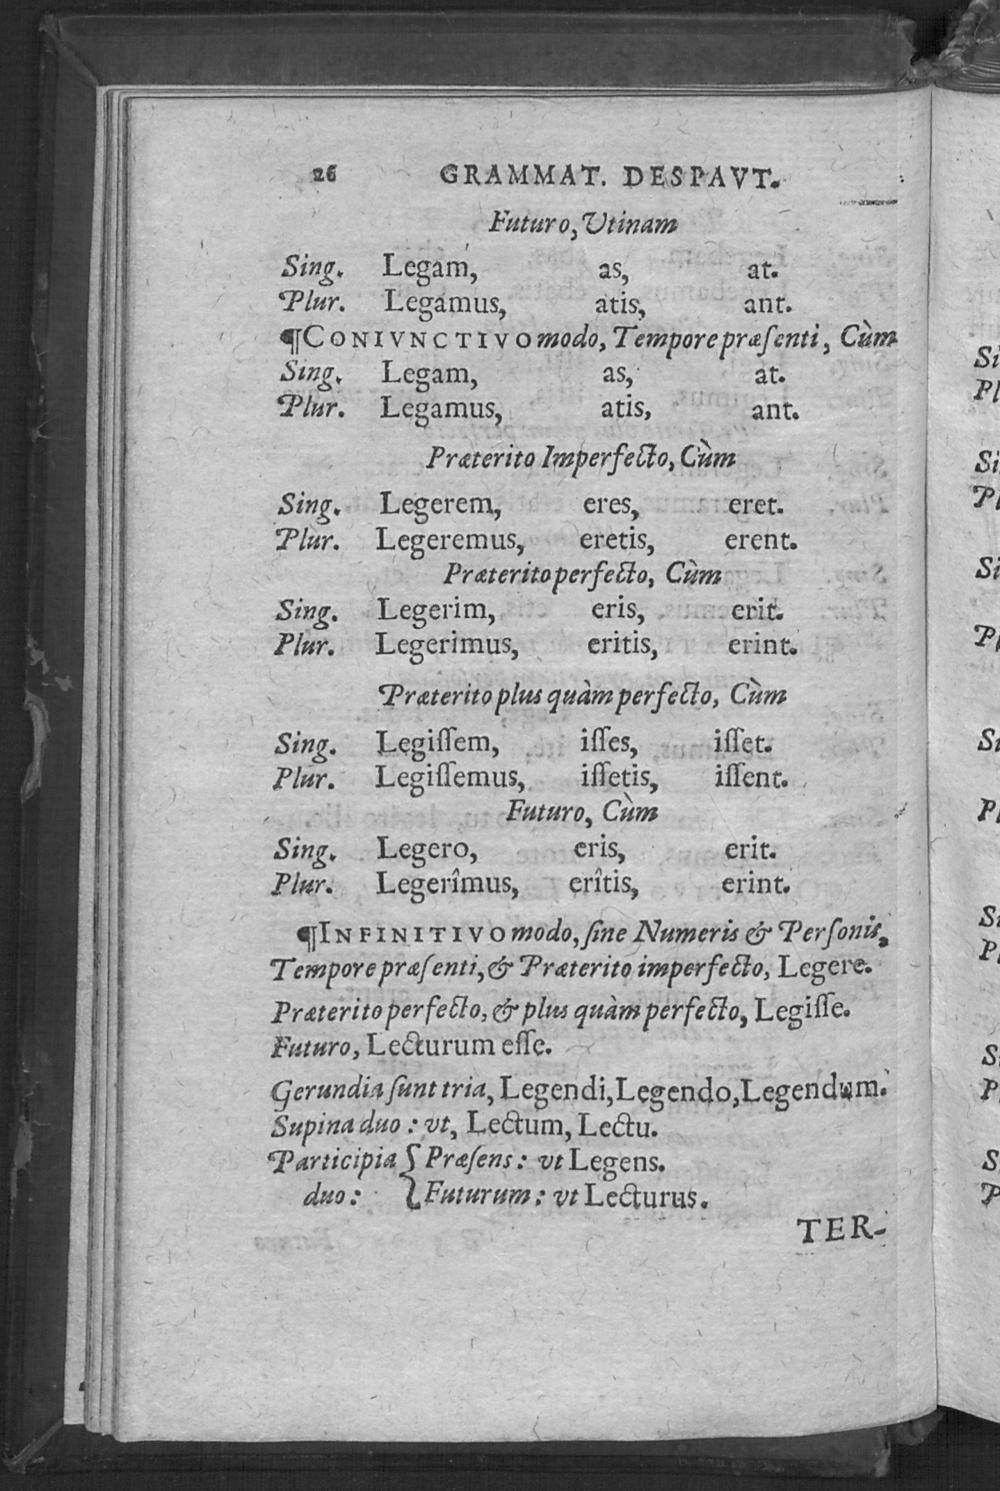 26 GRAMMAT. DESPAVT.
Futuro, Utinam
Sing. Legam, as, at.
Plur. Legamus, atis, ant.
¶CONIVNCTIVO modo, Tempore præſenti, Cùm
Sing. Legam, as, at.
Plur. Legamus, atis, ant.
Præterito Imperfecto, Cùm
Sing. Legerem, eres, eret.
Plur. Legeremus, eretis, erent.
Præterito perfecto, Cùm
Sing. Legerim, eris, erit.
Plur. Legerimus, eritis, erint.
Præterito plus quàm perfecto, Cùm
Sing. Legiſſem, iſſes, iſſet.
Plur. Legiſſemus, iſſetis, iſſent.
Futuro, Cùm
Sing. Legero, eris, erit.
Plur. Legerîmus, erîtis, erint.
¶INFINITIVO modo, ſine Numeris & Perſonis,
Tempore præſenti, & Præterito imperfecto, Legere.
Præterito perfecto, & plus quàm perfecto, Legiſſe.
Futuro, Lecturum eſſe.
Gerundia ſunt tria, Legendi, Legendo, Legendum.
Supina duo : vt, Lectum, Lectu.
Participia { Præſens : vt Legens.
duo : { Futurum : vt Lecturus.
TER-